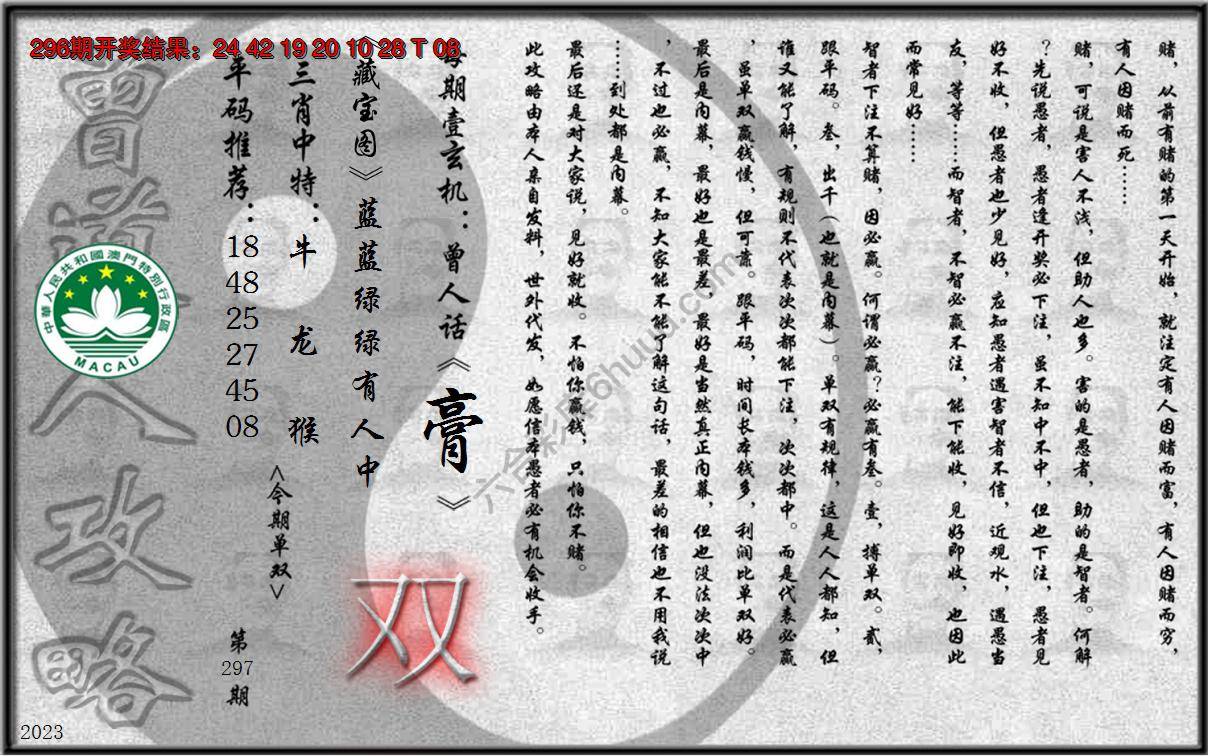 296期开奖结果：24 42 19 20 10 28 T 08
赌，从前有赌的第一天开始，就注定有人因赌而富，有人因赌而穷，
有人因赌而死……
赌，可说是害人不浅，但助人也多。害的是愚者，助的是智者。何解
？先说愚者，愚者逢开奖必下注，虽不知中不中，但也下注，愚者见
好不收，但愚者也少见好，应知愚者遇害智者不信，近观水，遇愚当
友，等等……而智者，不智必赢不注，能下能收，见好即收，也因此
而常见好……
智者下注不算赌，因必赢。何谓必赢？必赢有叁。壹，搏单双。贰，
跟平码。叁，出千（也就是内幕）。单双有规律，这是人人都知，但
谁又能了解，有规则不代表次次都能下注，次次都中。而是代表必赢
，虽单双赢钱慢，但可靠。跟平码，时间长本钱多，利润比单双好。
最后是内幕，最好也是最差，最好是当然真正内幕，但也没法次次中
，不过也必赢，不知大家能不能了解这句话，最差的相信也不用我说
……到处都是内幕。
最后还是对大家说，见好就收。不怕你赢钱，只怕你不赌。
此攻略由本人亲自发料，世外代发，如愿信本愚者必有机会收手。
每期壹玄机：曾人话《膏》
《藏宝图》蓝蓝绿绿有人中
三肖中特：牛 龙 猴
平码推荐：
18
48
25
27
45
08
<今期单双>
双
第
297
期
曾道人攻略
中華人民共和國澳門特別行政區
MACAU
六合彩库6huuu.com
2023